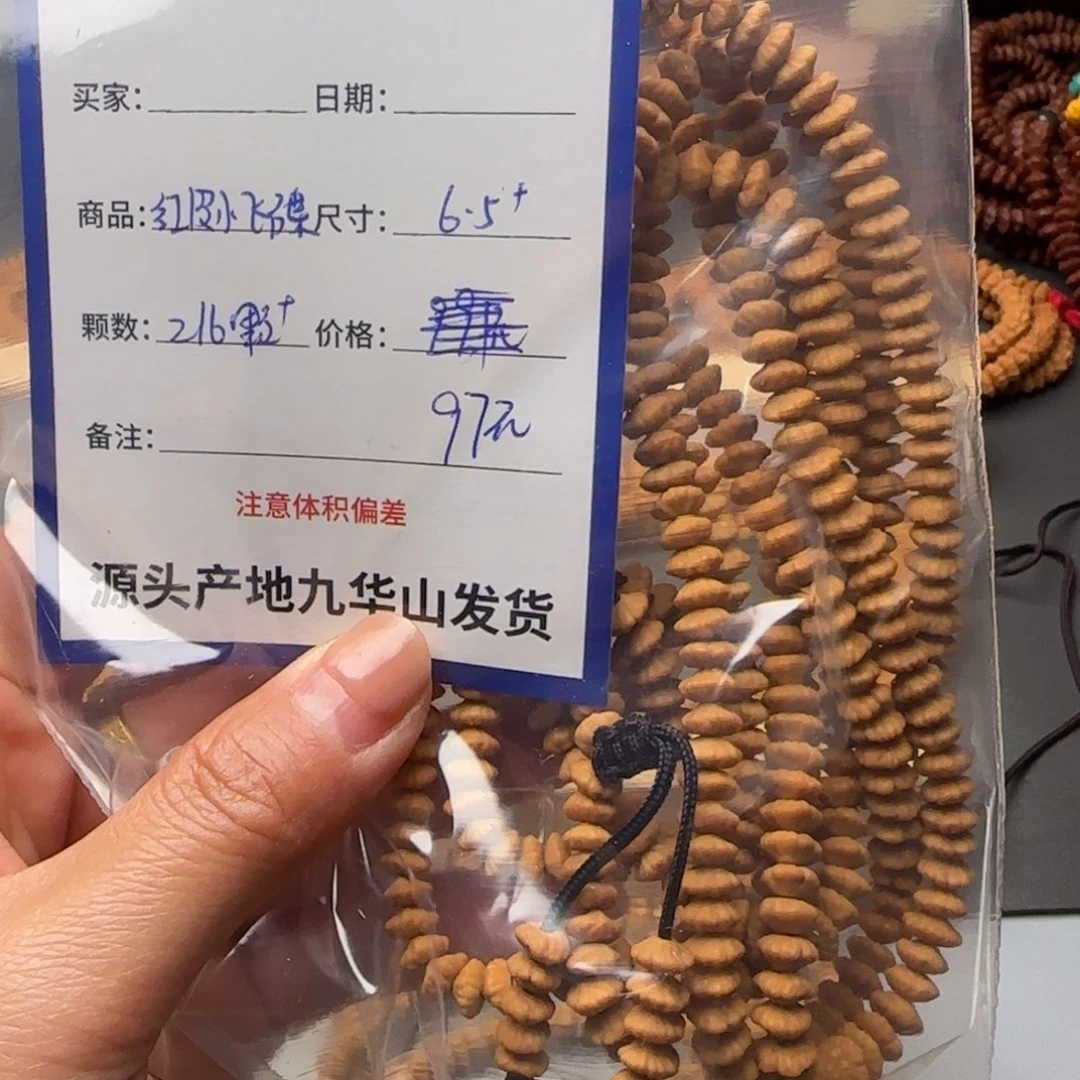 买家: 日期:
商品:红皮小飞碟 尺寸: 6.5+
颗数: 216颗+ 价格:
97元
备注:
注意体积偏差
源头产地九华山发货